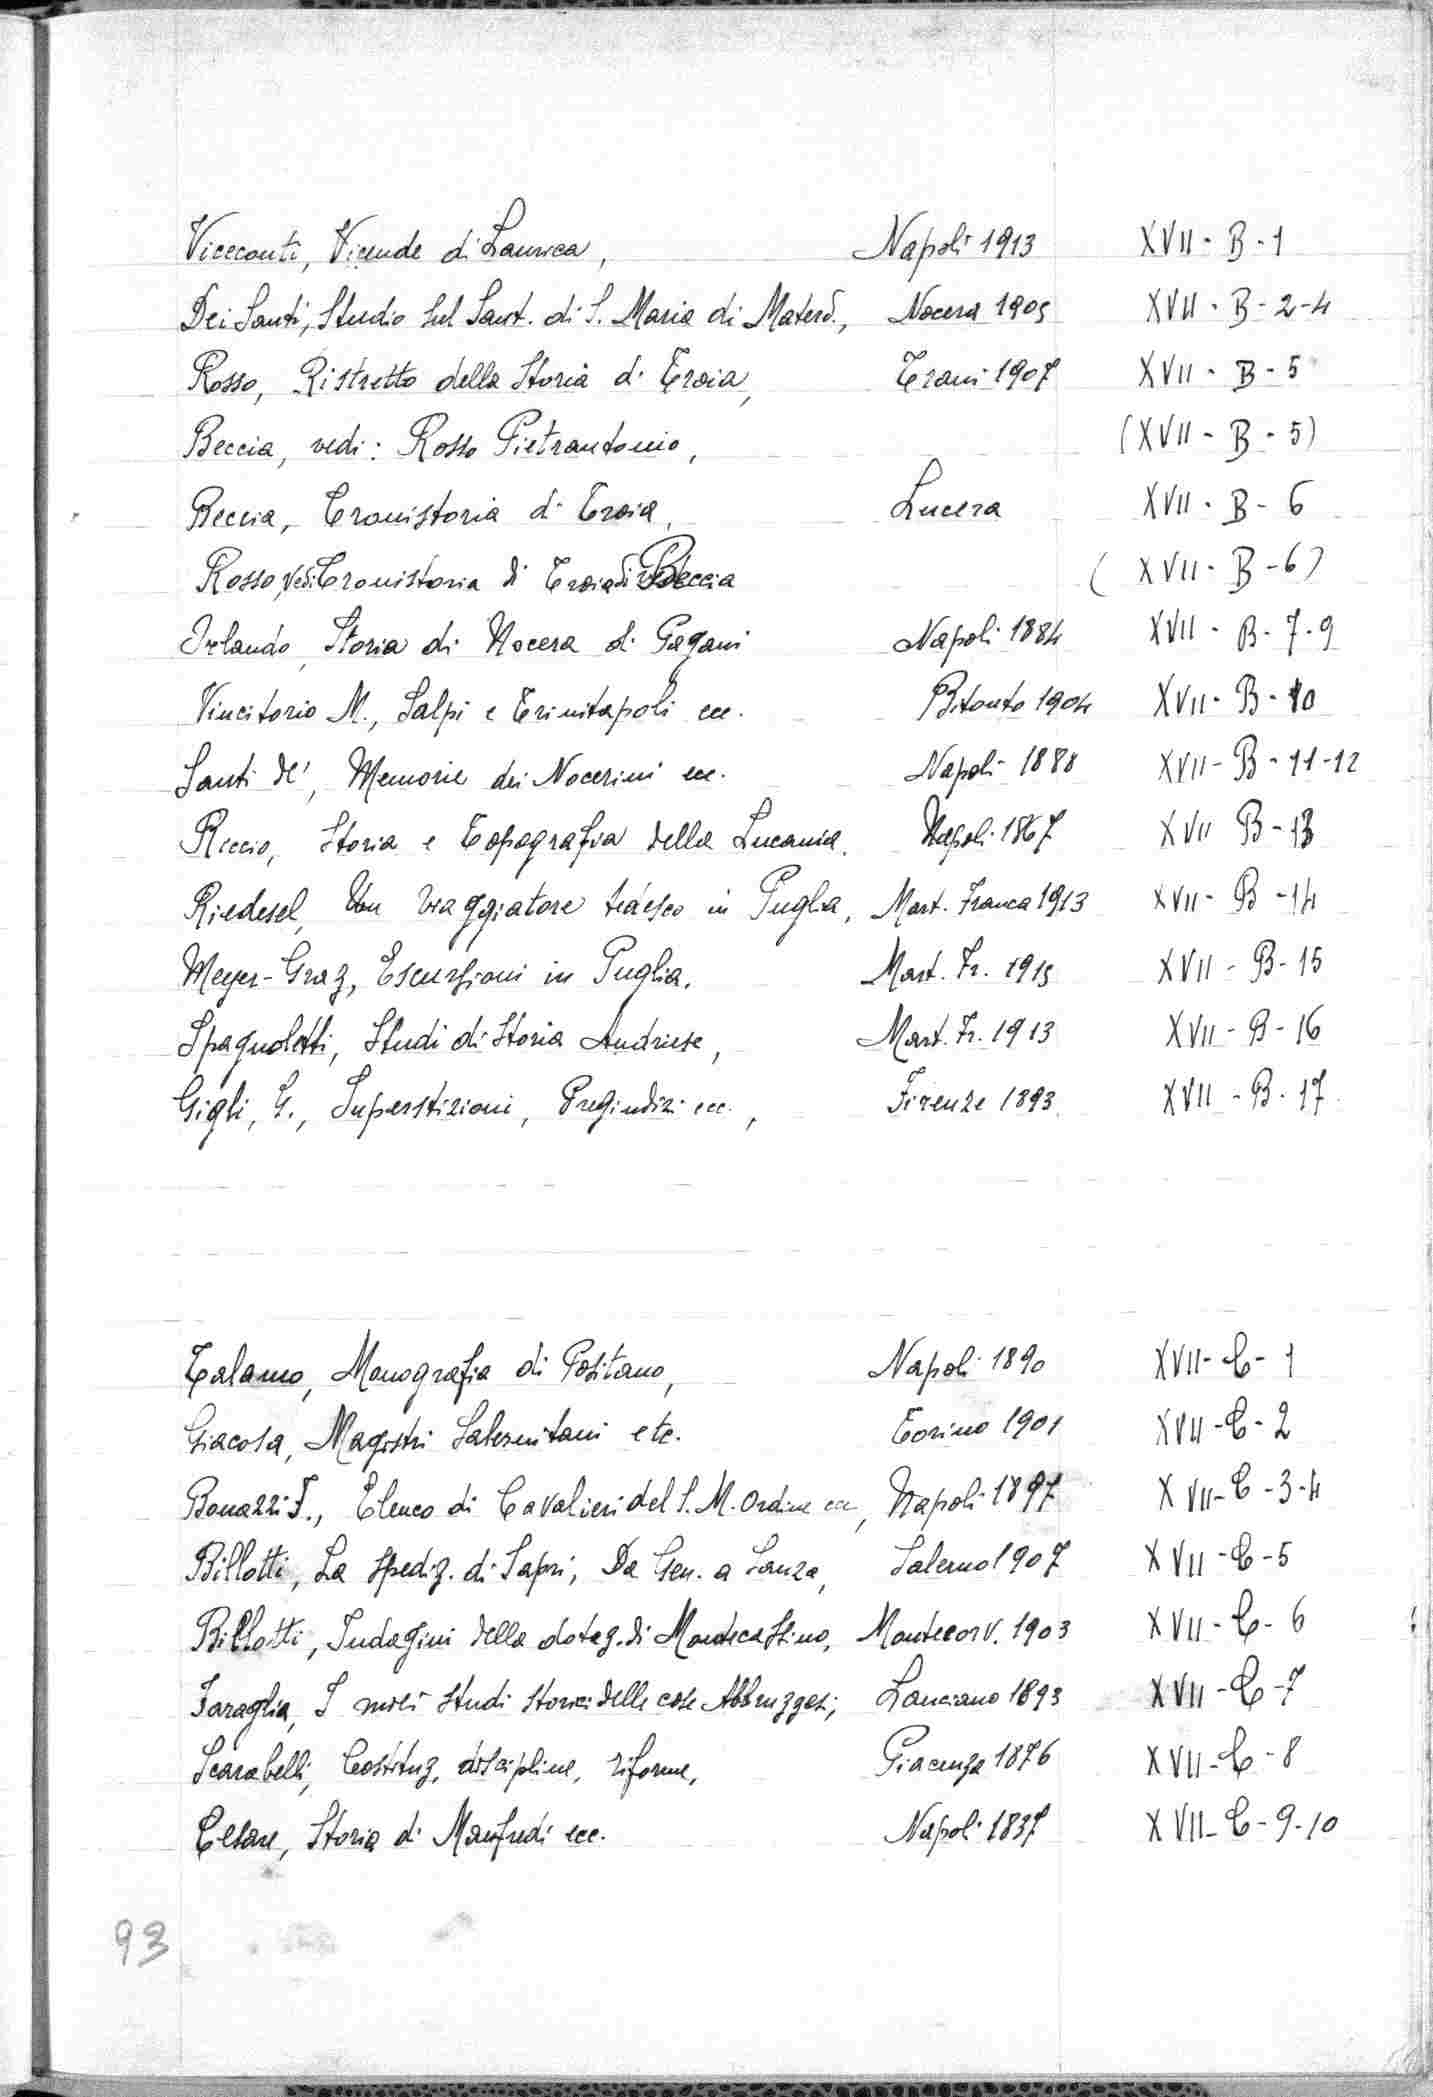 Viceconti, Vicende di Laurica, Napoli 1913 XVII - B - 1
Dei Santi, Studio sul Sant. di S. Maria di Materd., Nocera 1905 XVII - B - 2-4
Rosso, Ristretto della Storia di Troia, Trani 1907 XVII - B - 5
Beccia, vedi: Rosso Pietrantonio, (XVII - B - 5)
Beccia, Cronistoria di Troia, Lucera XVII - B - 6
Rosso, vedi Cronistoria di Troia di Beccia (XVII - B - 6)
Orlando, Storia di Nocera di Pagani Napoli 1884 XVII - B - 7-9
Vincitorio M., Salpi e Trinitapoli ecc. Bitonto 1904 XVII - B - 10
Santi de', Memorie dei Nocerini ecc. Napoli 1888 XVII - B - 11-12
Riccio, Storia e Topografia della Lucania. Napoli 1867 XVII B - 13
Riedesel, Un viaggiatore tedesco in Puglia, Mart. Franca 1913 XVII - B - 14
Meyer-Graz, Escursioni in Puglia. Mart. Fr. 1915 XVII - B - 15
Spagnoletti, Studi di Storia Andriese, Mart. Fr. 1913 XVII - B - 16
Gigli, G., Superstizioni, Pregiudizi ecc., Firenze 1893 XVII - B - 17
Talamo, Monografia di Positano, Napoli 1890 XVII - C - 1
Giacosa, Magistri Salernitani etc. Torino 1901 XVII - C - 2
Bonazzi F., Elenco di Cavalieri del S. M. Ordine ecc, Napoli 1897 XVII - C - 3-4
Bilotti, La Spediz. di Sapri, Da Gen. a Sanza, Salerno 1907 XVII - C - 5
Bilotti, Indagini della dotaz. di Montecassino, Montecorv. 1903 XVII - C - 6
Faraglia, I miei studi storici delle cose Abbruzzesi, Lanciano 1893 XVII - C - 7
Scarabelli, Costituz, discipline, riforme, Piacenza 1876 XVII - C - 8
Cesare, Storia di Manfredi ecc. Napoli 1837 XVII - C - 9-10
93